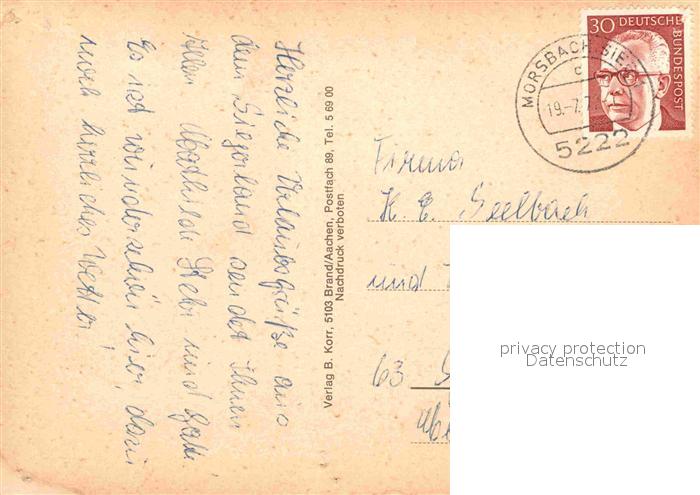 Herzliche Urlaubsgrüße aus
dem Siegerland sendet Ihnen
Allen Mathilde Stehr und
Es ist wunderschön hier, dazu
noch herrliches Wetter!
Verlag B. Korr, 5103 Brand/Aachen, Postfach 89, Tel. 5 69 00
Nachdruck verboten
30 DEUTSCHE
BUNDESPOST
MORSBACH SIEG
19.-7.7
5222
Firma
H. E. Seelbach
und
63
privacy protection
Datenschutz